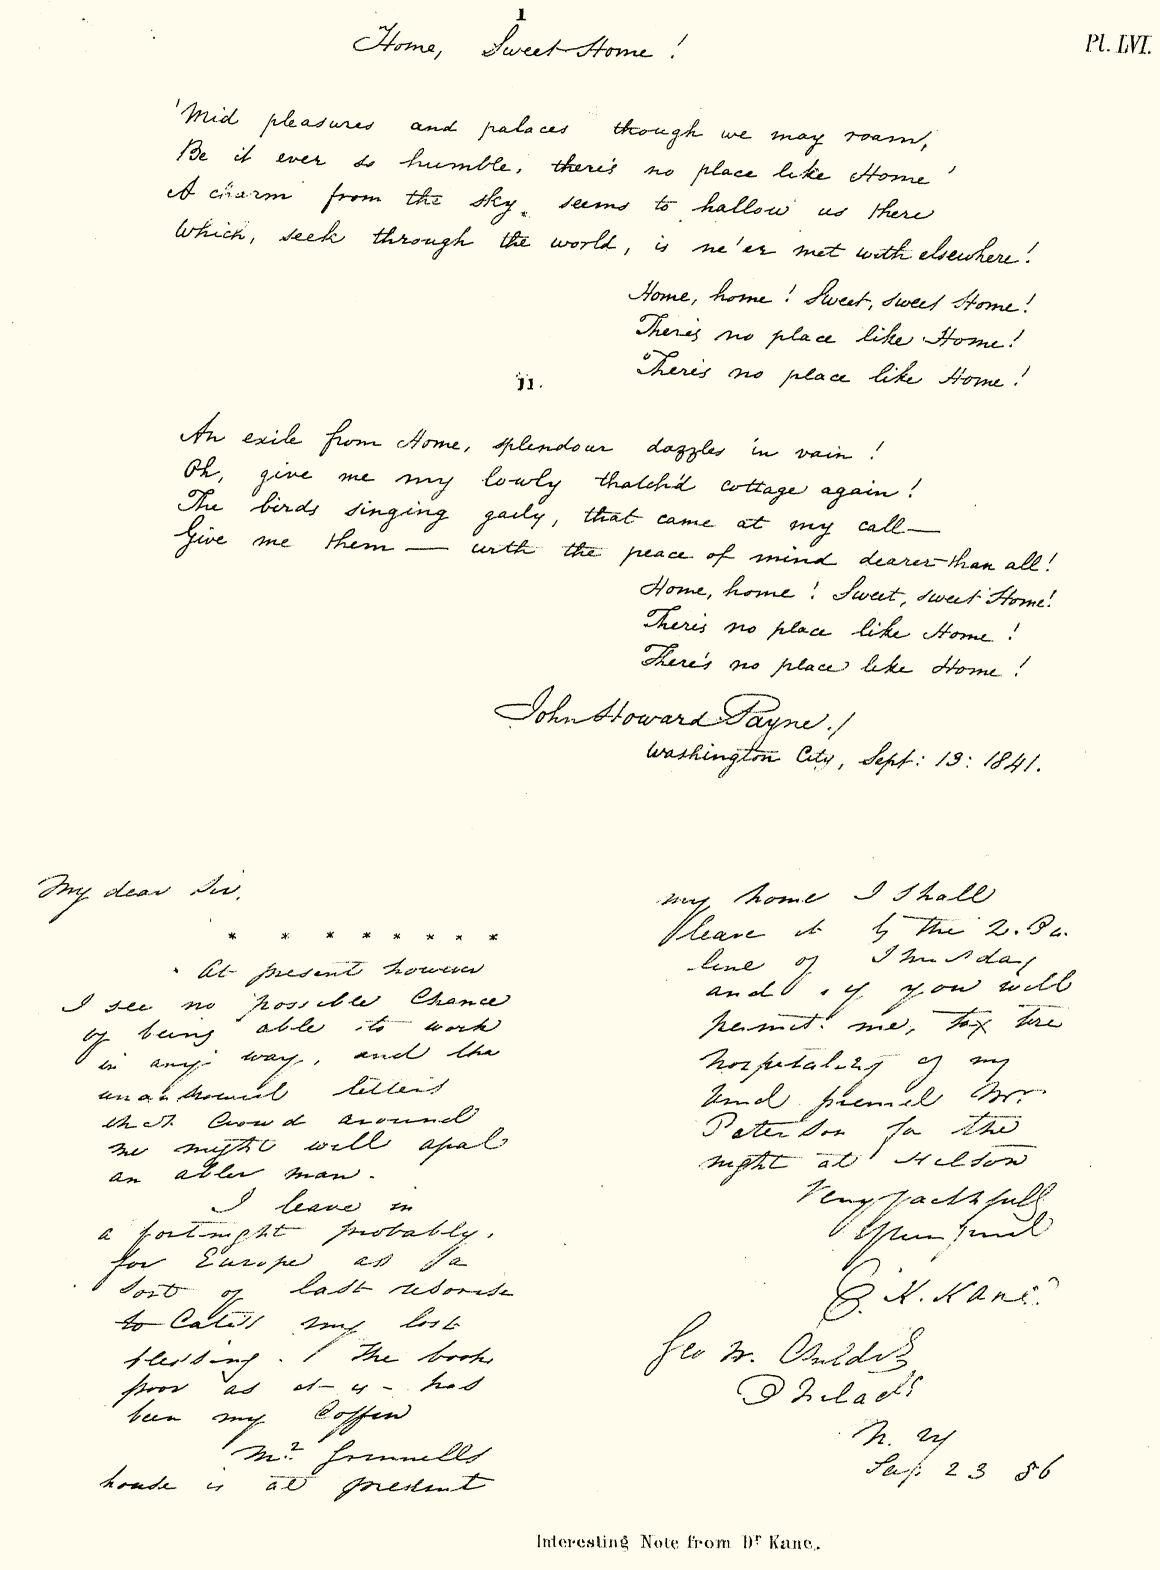 Pl. LVI.
I
Home, Sweet Home!
'Mid pleasures and palaces though we may roam,
Be it ever so humble, there's no place like Home'
A charm from the sky seems to hallow us there
Which, seek through the world, is ne'er met with elsewhere!
Home, home! Sweet, sweet Home!
There's no place like Home!
There's no place like Home!
II.
An exile from Home, splendour dazzles in vain!
Oh, give me my lowly thatch'd cottage again!
The birds singing gaily, that came at my call—
Give me them — with the peace of mind dearer than all!
Home, home! Sweet, sweet Home!
There's no place like Home!
There's no place like Home!
John Howard Payne./
Washington City, Sept: 13: 1841.
My dear Sir.
* * * * * * * *
At present however
I see no possible Chance
of being able to work
in any way, and the
unanswered letters
that Crowd around
me might well apal
an abler man.
I leave in
a fortnight probably.
for Europe as a
sort of last
to Catch my lost
blessing. The book
poor as it is has
been my Coffin
Mr. Grinnells
house is at present
my home I shall
leave it by the 2. P.M.
line of Thursday
and if you will
permit me, the
hospitality of my
kind friend Mr.
Paterson for the
night at
Very faithfully
Your friend
E. K. Kane.
Geo W. Childs
Philada
N. Y
Sep. 23 56
Interesting Note from Dr Kane.